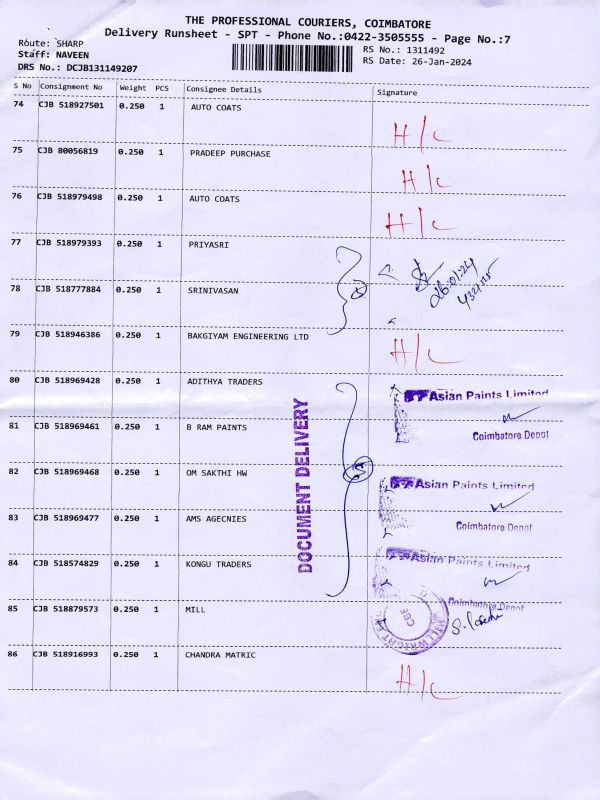 THE PROFESSIONAL COURIERS, COIMBATORE
Delivery Runsheet - SPT - Phone No.:0422-3505555 - Page No.:7
Route: SHARP
Staff: NAVEEN
DRS No.: DCJB131149207
RS No.: 1311492
RS Date: 26-Jan-2024
S No Consignment No Weight PCS Consignee Details Signature
74 CJB 518927501 0.250 1 AUTO COATS H/C
75 CJB 80056819 0.250 1 PRADEEP PURCHASE H/C
76 CJB 518979498 0.250 1 AUTO COATS H/C
77 CJB 518979393 0.250 1 PRIYASRI
26:01:24
78 CJB 518777884 0.250 1 SRINIVASAN
79 CJB 518946386 0.250 1 BAKGIYAM ENGINEERING LTD H/C
80 CJB 518969428 0.250 1 ADITHYA TRADERS
Asian Paints Limited
81 CJB 518969461 0.250 1 B RAM PAINTS
Coimbatore Depot
DOCUMENT DELIVERY
82 CJB 518969468 0.250 1 OM SAKTHI HW
Asian Paints Limited
83 CJB 518969477 0.250 1 AMS AGECNIES
Coimbatore Depot
84 CJB 518574829 0.250 1 KONGU TRADERS
Asian Paints Limited
85 CJB 518879573 0.250 1 MILL
Coimbatore Depot
CBE
86 CJB 518916993 0.250 1 CHANDRA MATRIC H/C